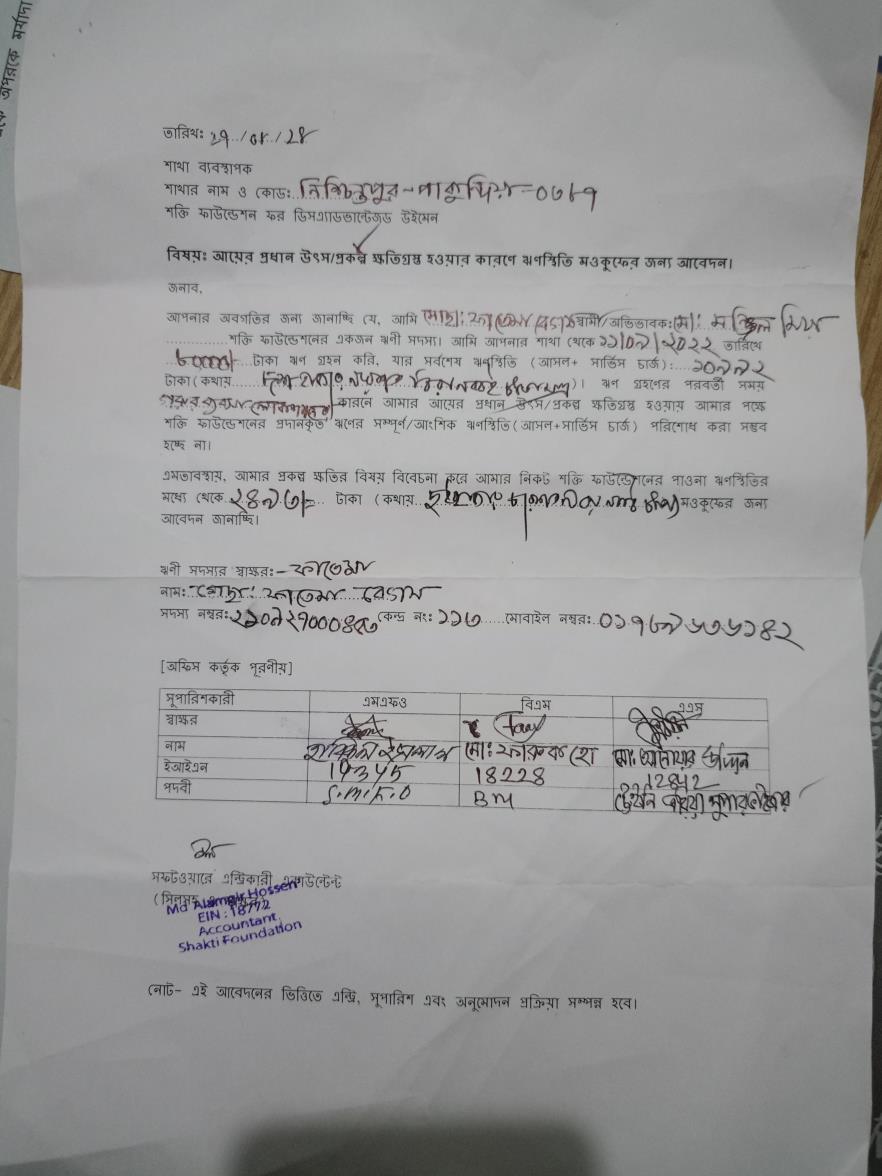 তারিখ: 29/08/24
শাখা ব্যবস্থাপক
শাখার নাম ও কোড: নিশ্চিন্তপুর-পাকুন্দিয়া-০৩৮৭
শক্তি ফাউন্ডেশন ফর ডিসএ্যাডভান্টেজড উইমেন
বিষয়: আয়ের প্রধান উৎস/প্রকল্প ক্ষতিগ্রস্থ হওয়ার কারণে ঋণস্থিতি মওকুফের জন্য আবেদন।
জনাব,
আপনার অবগতির জন্য জানাচ্ছি যে, আমি মোছা: ফাতেমা বেগম স্বামী/অভিভাবক: মো: মিয়া
শক্তি ফাউন্ডেশনের একজন ঋণী সদস্য। আমি আপনার শাখা থেকে ১১/০৯/২০২২ তারিখে
৮০০০০/ টাকা ঋণ গ্রহন করি, যার সর্বশেষ ঋণস্থিতি (আসল+ সার্ভিস চার্জ): ১০৯৯২
টাকা (কথায় দশ হাজার নয়শত বিরানব্বই টাকা)। ঋণ গ্রহণের পরবর্তী সময়
কারনে আমার আয়ের প্রধান উৎস/প্রকল্প ক্ষতিগ্রস্থ হওয়ায় আমার পক্ষে
শক্তি ফাউন্ডেশনের প্রদানকৃত ঋণের সম্পূর্ণ/আংশিক ঋণস্থিতি (আসল+সার্ভিস চার্জ) পরিশোধ করা সম্ভব
হচ্ছে না।
এমতাবস্থায়, আমার প্রকল্প ক্ষতির বিষয় বিবেচনা করে আমার নিকট শক্তি ফাউন্ডেশনের পাওনা ঋণস্থিতির
মধ্যে থেকে টাকা (কথায় মওকুফের জন্য
আবেদন জানাচ্ছি।
ঋণী সদস্যর স্বাক্ষর:- ফাতেমা
নাম: মোছা: ফাতেমা বেগম
সদস্য নম্বর: কেন্দ্র নং: ১১৩ মোবাইল নম্বর: ০১৭৮৯৬৩৬১৪২
[অফিস কর্তৃক পূরনীয়]
সুপারিশকারী এমএফও বিএম এএস
স্বাক্ষর
নাম মো: ফারুক হো মো: আনোয়ার
ইআইএন 19345 18228 12842
পদবী S.M.F.O BM সুপারভাইজার
সফটওয়ারে এন্ট্রিকারী একাউন্টেন্ট
Md Alamgir Hossen
EIN : 18772
Accountant
Shakti Foundation
নোট- এই আবেদনের ভিত্তিতে এন্ট্রি, সুপারিশ এবং অনুমোদন প্রক্রিয়া সম্পন্ন হবে।